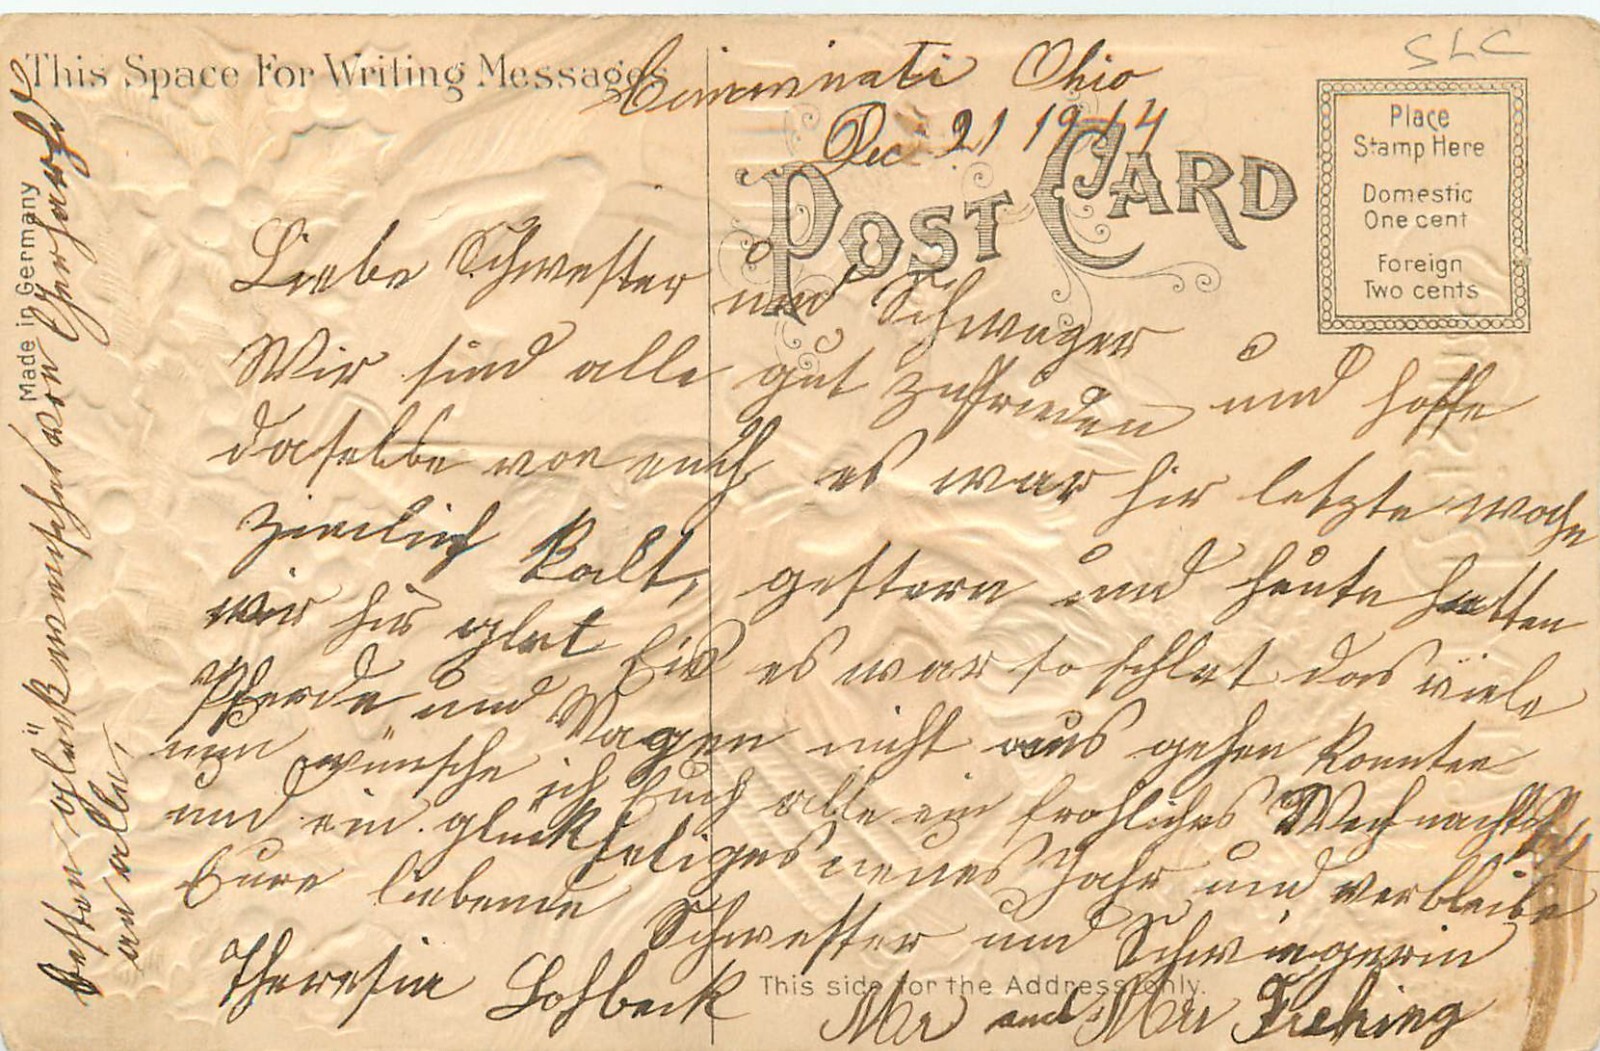 This Space For Writing Messages
SLC
Cincinnati Ohio
Dec 21 1914
POST CARD
Place
Stamp Here
Domestic
One cent
Foreign
Two cents
Made in Germany
Liebe Schwester und Schwager
Wir sind alle gut zufrieden und hoffe
daselbe von euch es war hir letzte woche
ziemlich kalt, gestern und heute hatten
wir hir glat Eis es war so schlat das viele
Pferde und Wagen nicht aus gehen konnten
nun wünsche ich Euch alle ein frohliches Weihnachts
und ein glückseliges neues Jahr und verbleibe
Eure liebende Schwester und Schwiegerin
Theresia Lohbeck
This side for the Address Only.
Mr and Mrs Freking
besten Glückwunsche von
an alle,